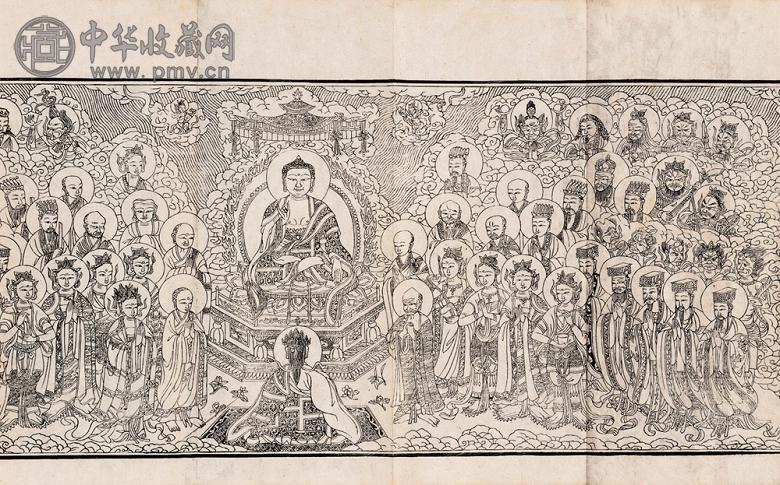 中华收藏网
www.pmv.cn